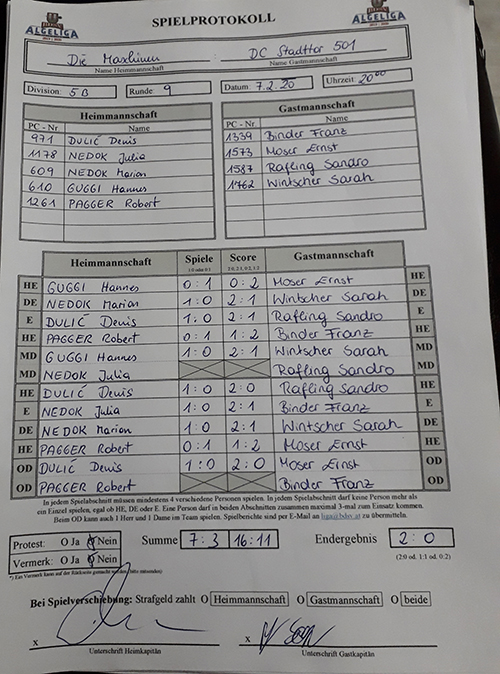 ALGELIGA SPIELPROTOKOLL ALGELIGA
Die Maschinen : DC Stadttor 501
Name Heimmannschaft Name Gastmannschaft
Division: 5B Runde: 9 Datum 7.2.20 Uhrzeit: 20⁰⁰
Heimmannschaft Gastmannschaft
PC - Nr. Name PC - Nr. Name
971 DULIĆ Denis 1339 Binder Franz
1178 NEDOK Julia 1573 Moser Ernst
609 NEDOK Marion 1587 Rafling Sandro
610 GUGGI Hannes 1762 Wintscher Sarah
1261 PAGGER Robert
Heimmannschaft Spiele Score Gastmannschaft
HE GUGGI Hannes 0:1 0:2 Moser Ernst HE
DE NEDOK Marion 1:0 2:1 Wintscher Sarah DE
E DULIĆ Denis 1:0 2:1 Rafling Sandro E
HE PAGGER Robert 0:1 1:2 Binder Franz HE
MD GUGGI Hannes 1:0 2:1 Wintscher Sarah MD
MD NEDOK Julia Rafling Sandro MD
HE DULIĆ Denis 1:0 2:0 Rafling Sandro HE
E NEDOK Julia 1:0 2:1 Binder Franz E
DE NEDOK Marion 1:0 2:1 Wintscher Sarah DE
HE PAGGER Robert 0:1 1:2 Moser Ernst HE
OD DULIĆ Denis 1:0 2:0 Moser Ernst OD
OD PAGGER Robert Binder Franz OD
In jedem Spielabschnitt müssen mindestens 4 verschiedene Personen spielen. In jedem Spielabschnitt darf keine Person mehr als
ein Einzel spielen, egal ob HE, DE oder E. Eine Person darf in beiden Abschnitten zusammen maximal 3-mal zum Einsatz kommen.
Beim OD kann auch 1 Herr und 1 Dame im Team spielen. Spielberichte sind per E-Mail an zu übermitteln.
Protest: O Ja O Nein Summe 7:3 16:11 Endergebnis 2:0
Vermerk: O Ja O Nein (2:0 od. 1:1 od. 0:2)
Bei Spielverschiebung: Strafgeld zahlt O Heimmannschaft O Gastmannschaft O beide
x x
Unterschrift Heimkapitän Unterschrift Gastkapitän